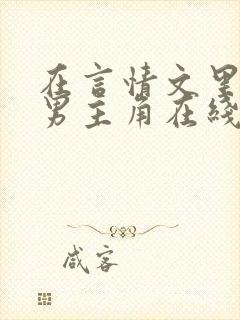 在言情文里
男主角在线
咸客